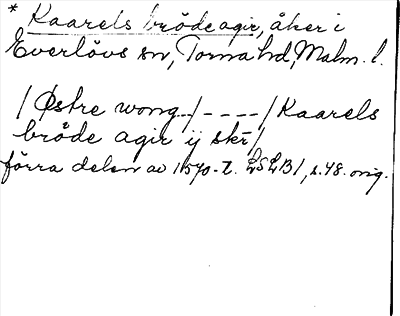 * Kaarels bröde agir, åker i
Everlövs sn, Torna hd, Malm. l.
/ Østre wong / - - - - / Kaarels
bröde agir ij skr /
förra delen av 1570-t. LSLB 1, s. 48. orig.